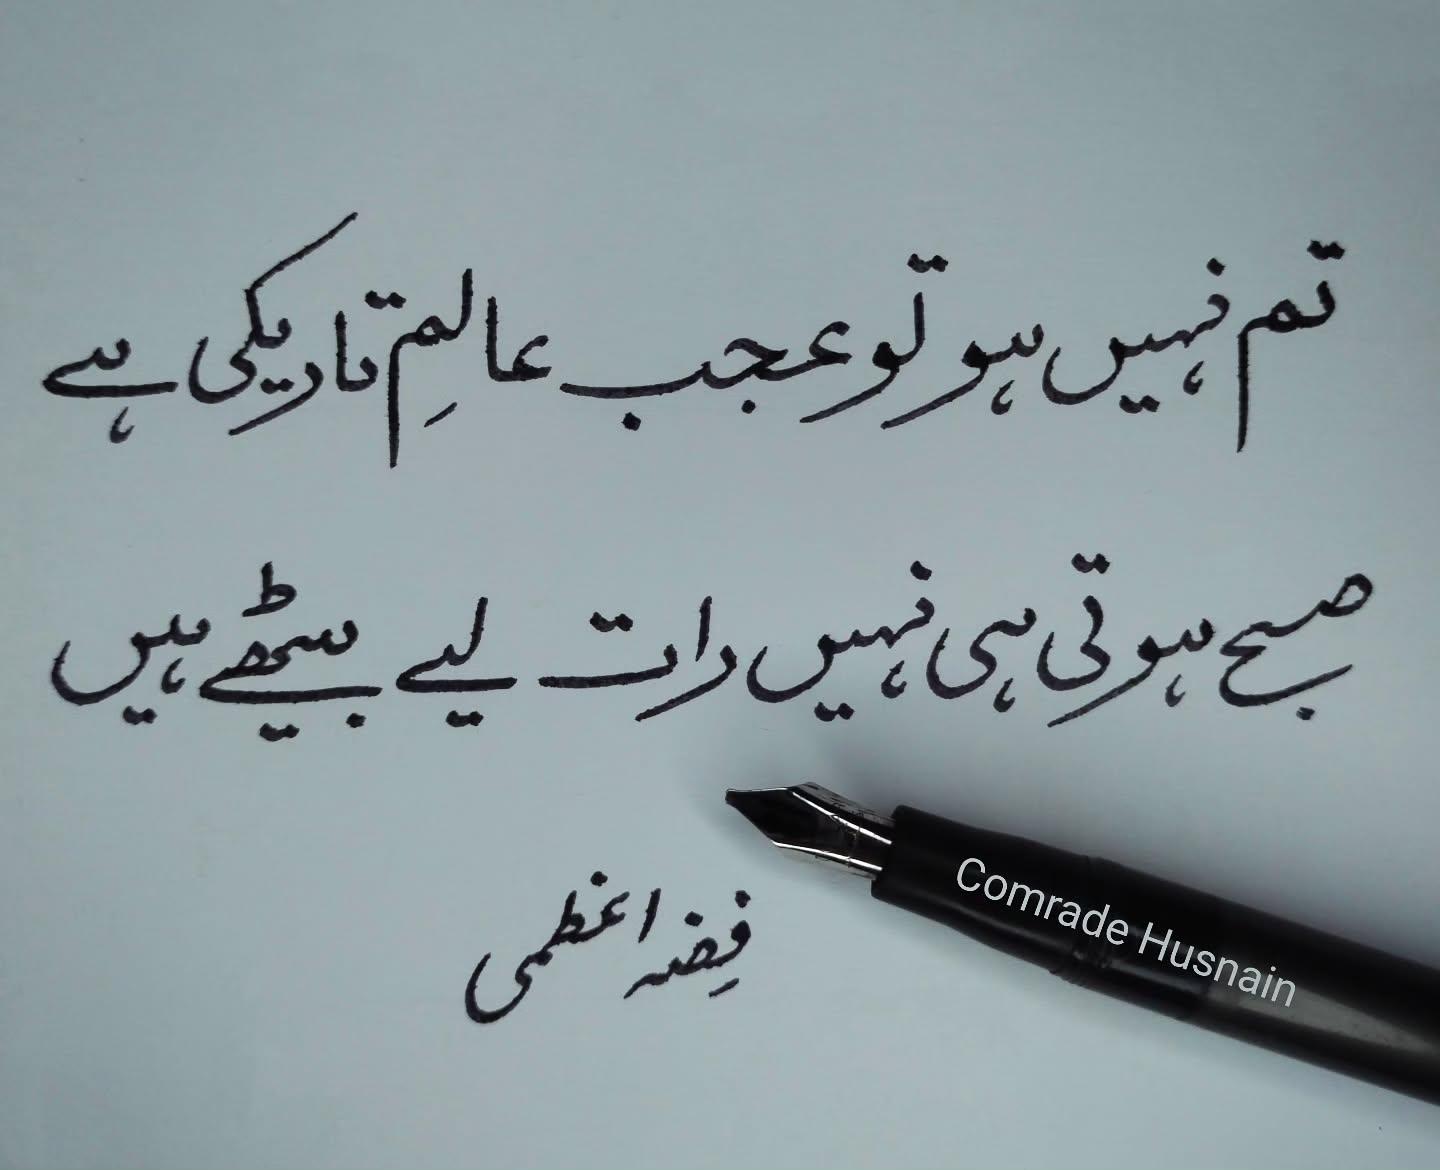 تم نہیں ہو تو عجب عالمِ تاریکی ہے
صبح ہوتی ہی نہیں رات لیے بیٹھے ہیں
فِضہ اعظمی
Comrade Husnain